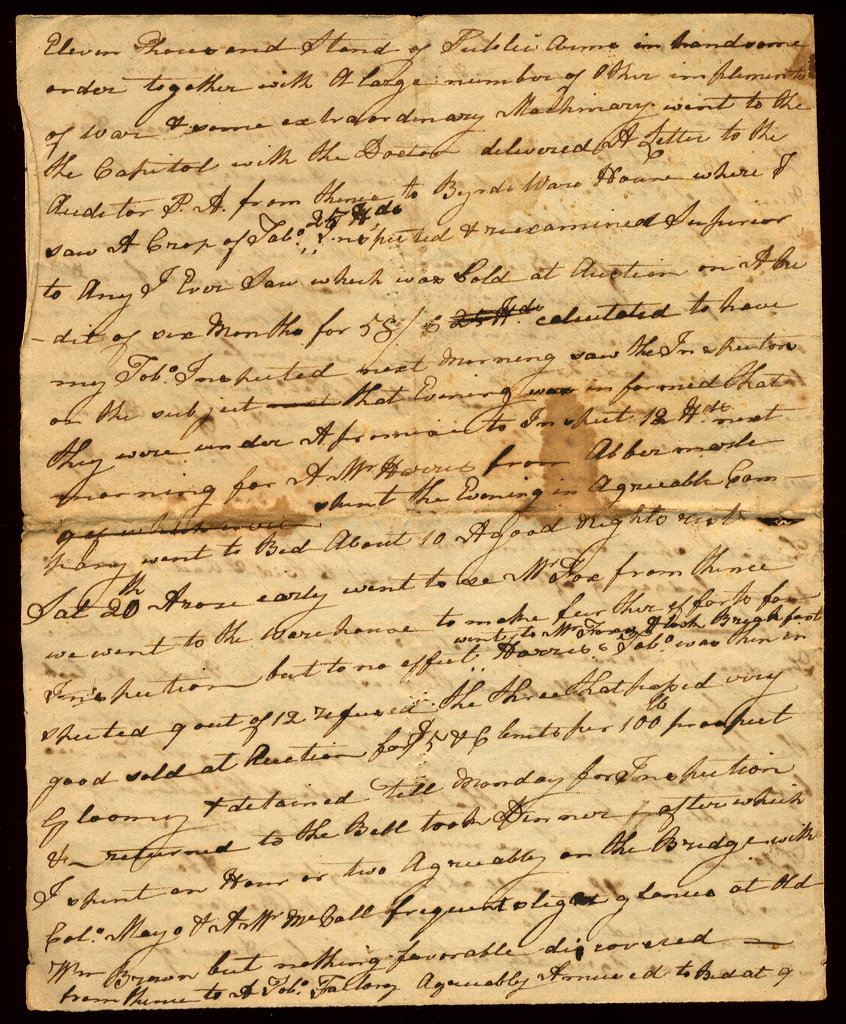 Eleven Thousand Stand of Public Arms in handsome
order together with A large number of Other implements
of War & some extraordinary Machinary went to the
the Capitol with the Doctor delivered A Letter to the
Auditor P. A. from thence to Byrds Ware House where I
saw A Crop of Tobo. 25 Hds Inspected & reexamined Superior
to Any I Ever Saw which was Sold at Auction on A Cre
- dit of six Months for 58/6 25 Hds calculated to have
my Tobo. Inspected next morning saw the Inspectors
on the subject that Evening was informed that
they were under A promise to Inspect 12 Hds. next
morning for A Mr Harris from Abbermarle
spent the Evening in Agreeable Com -
pany went to Bed About 10 A good nights rest
Sat 20th Arose early went to see Mr Fox from thence
we went to the Warehouse to make feurther efforts for
went to Mr Foxes & took Breakfast
Inspection but to no effect. Harris's Tobo. was then in
spected 9 out of 12 refused the three that passed very
good sold at Auction for $5 & 6 Cents per 100 lb prospect
Gloomy & detained till Monday for Inspection
&- returned to the Bell took Dinner after which
I spent an Hour or two Agreeably on the Bridge with
Colo. Mayo & A Mr McCall frequent slight glances at Old
Wm Brown but nothing favorable discovered —
from thence to A Tobo. Factory Agreeably Amused to Bed at 9